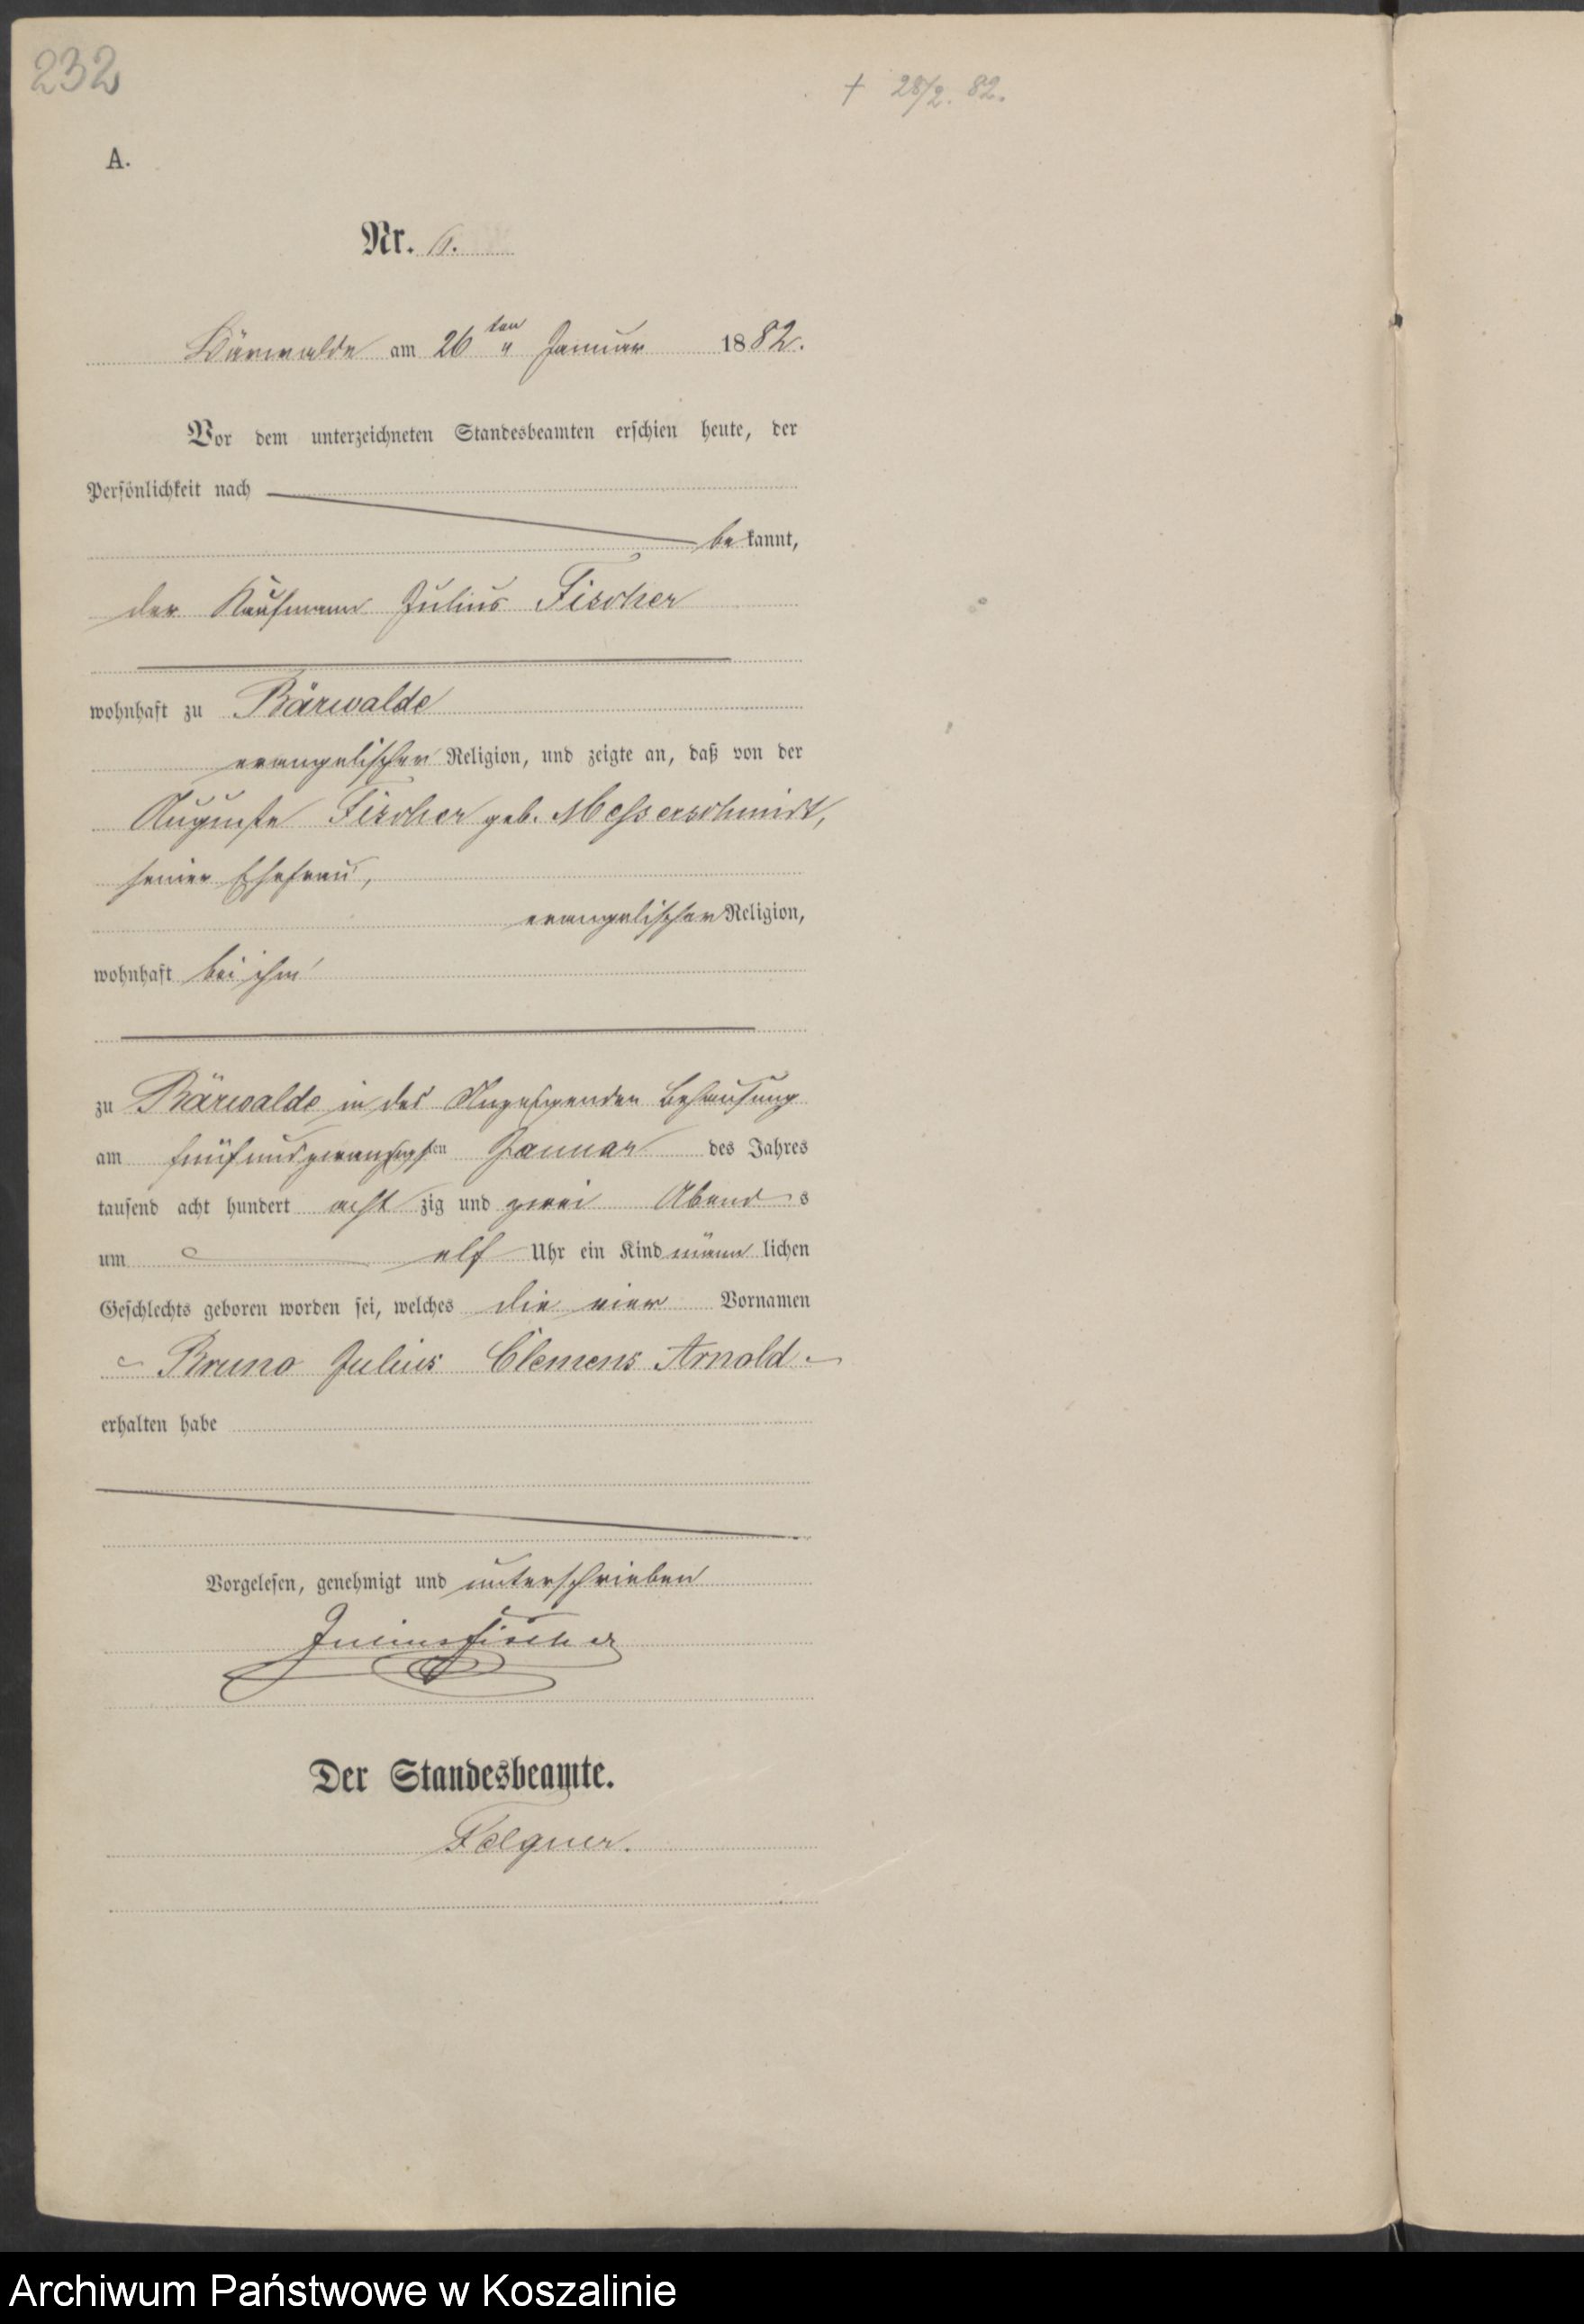 232
+ 28/2. 82.
A.
Nr. 6.
Bärwalde am 26 ten Januar 1882.
Vor dem unterzeichneten Standesbeamten erschien heute, der
Persönlichkeit nach
bekannt,
der Kaufmann Julius Fischer
wohnhaft zu Bärwalde
evangelischer Religion, und zeigte an, daß von der
Auguste Fischer geb. Messerschmidt,
seiner Ehefrau,
evangelischer Religion,
wohnhaft bei ihm
zu Bärwalde in des Anzeigenden Behausung
am fünfundzwanzigsten Januar des Jahres
tausend acht hundert achtzig und zwei Abends
um elf Uhr ein Kind männlichen
Geschlechts geboren worden sei, welches die vier Vornamen
Bruno Julius Clemens Arnold
erhalten habe
Vorgelesen, genehmigt und unterschrieben
Julius Fischer
Der Standesbeamte.
Felgner.
Archiwum Państwowe w Koszalinie